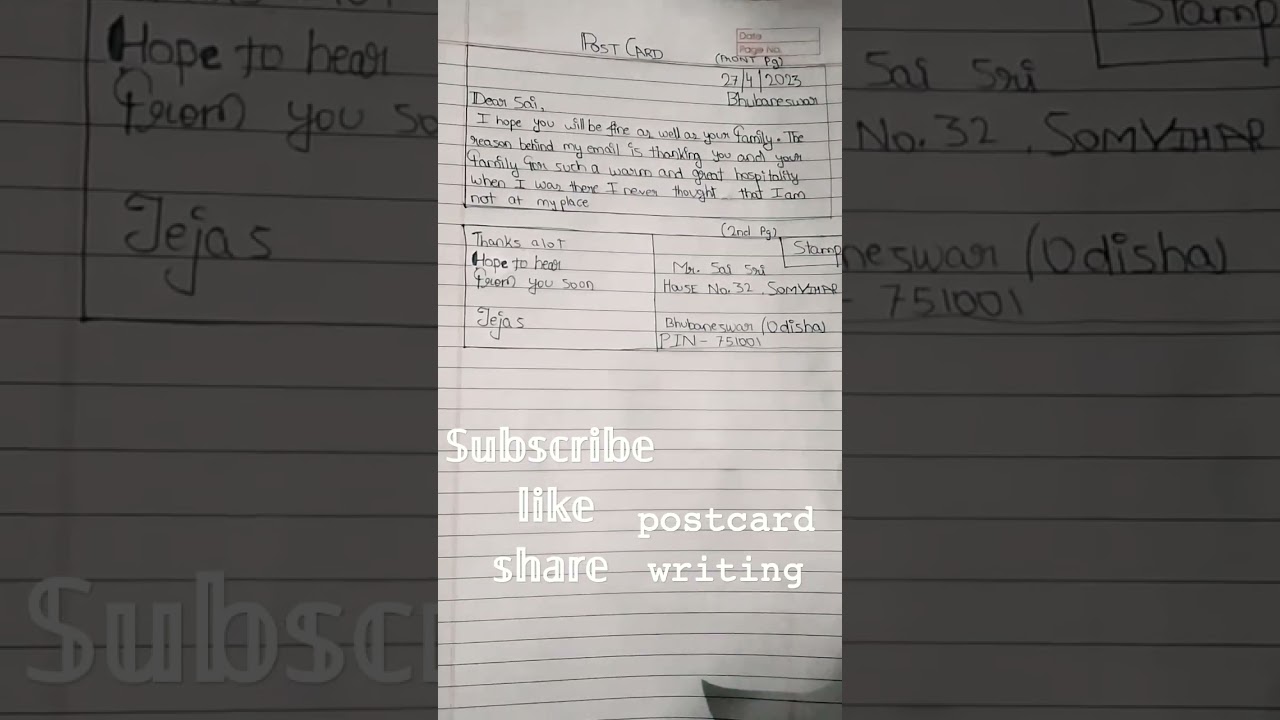 POST CARD
Date
Page No.
(FRONT Pg)
27/4/2023
Bhubaneswar
Dear Sai,
I hope you will be fine as well as your family. The
reason behind my email is thanking you and your
family for such a warm and great hospitality
when I was there I never thought that I am
not at my place
(2nd Pg)
Thanks alot
Hope to hear
from you soon
Tejas
Stamp
Mr. Sai Sri
House No.32, SOMVIHAR
Bhubaneswar (Odisha)
PIN - 751001
Subscribe
like
share
postcard
writing
Hope to hear
from you so
Tejas
Subscr
Stamp
Sai Sri
No.32, SOMVIHAR
neswar (Odisha)
- 751001